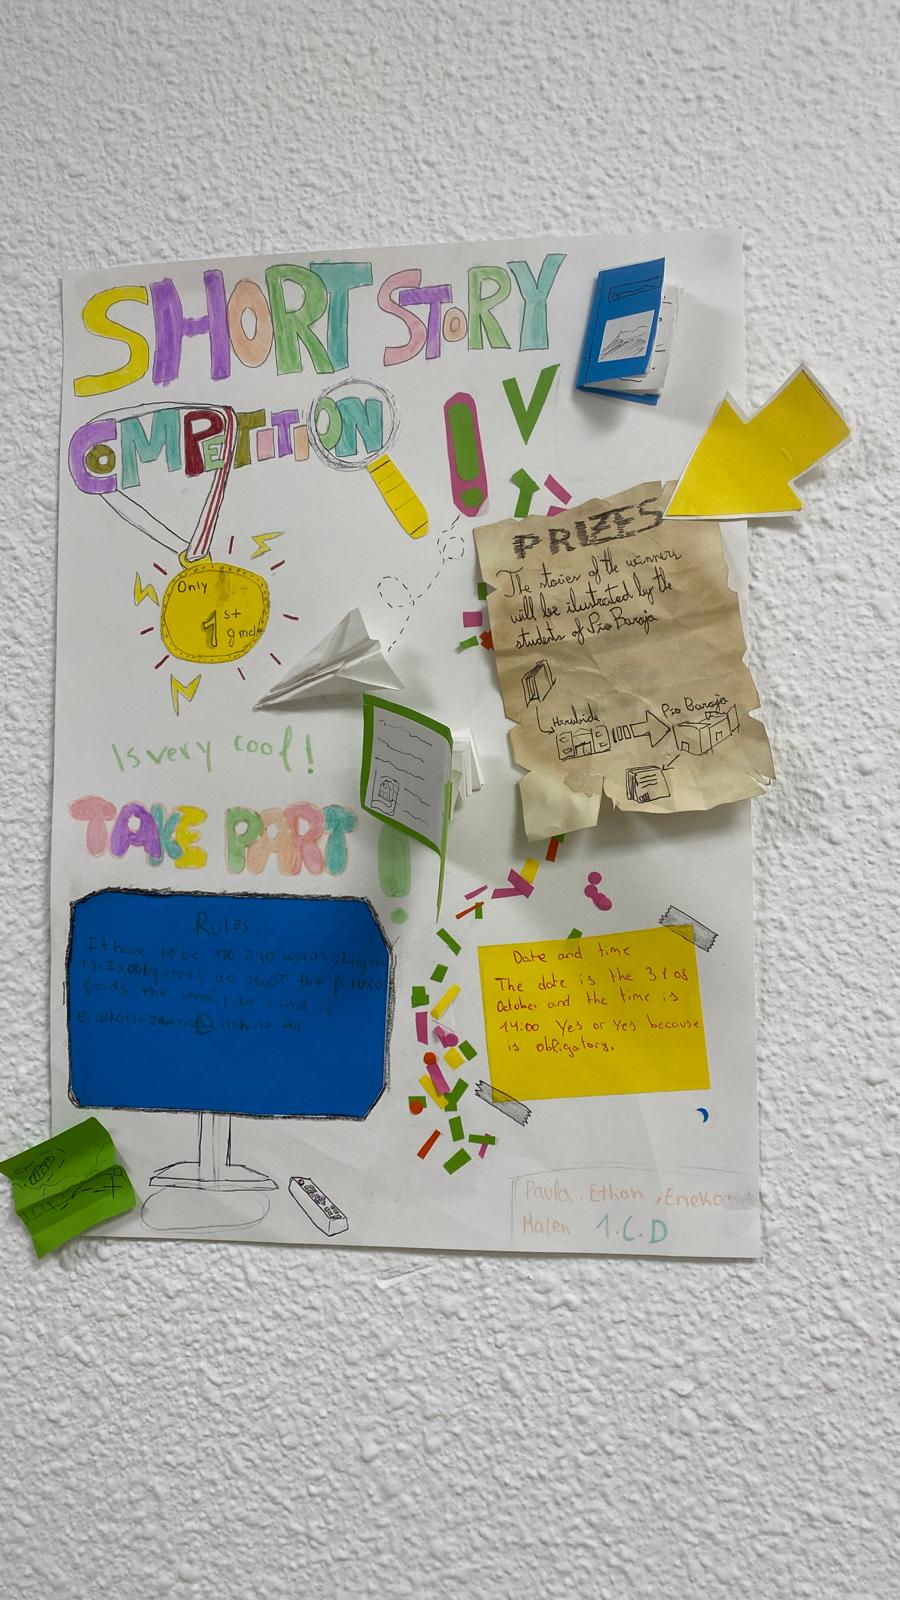 SHORT STORY
COMPETITION
Only
1st
PRIZES
The stories of the winners
will be ilustrated by the
students of Pio Baroja
Hirubide
Pio Baroja
Is very cool!
TAKE PART!
Rules
It have to be 190-240 words
Is obligatory do about the future
foods the email to send is
Date and time
The date is the 31 of
October and the time is
14:00 Yes or Yes because
is obligatory.
Paula, Ethan, Eneko
Malen 1.C.D